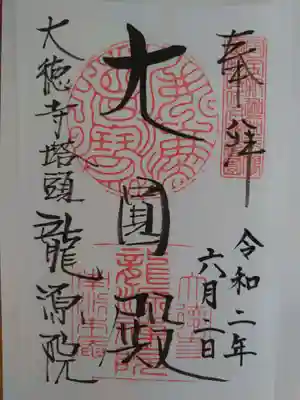 奉拝
令和二年
六月二日
大圓殿
大徳寺塔頭 龍源院